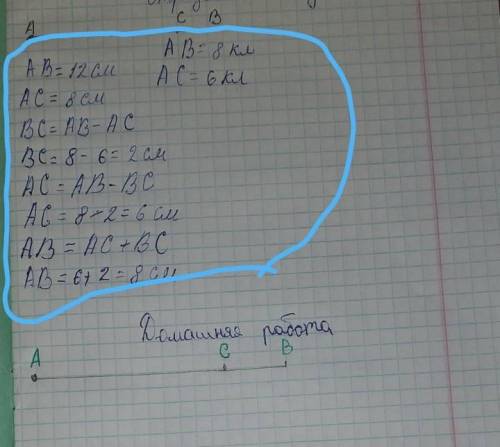 A C B
AB = 8 кл
AB = 12 см
AC = 6 кл
AC = 8 см
BC = AB - AC
BC = 8 - 6 = 2 см
AC = AB - BC
AC = 8 - 2 = 6 см
AB = AC + BC
AB = 6 + 2 = 8 см
Домашняя работа
A C B